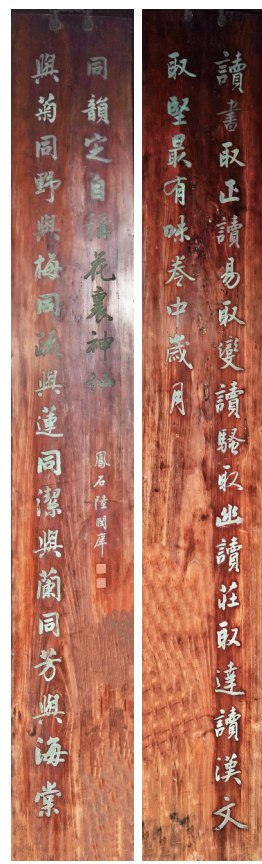 讀書取正讀易取變讀騷取幽讀莊取達讀漢文
取堅最有味卷中歲月
與菊同野與梅同疏與蓮同潔與蘭同芳與海棠
同韻定自稱花裏神仙
鳳石陸潤庠